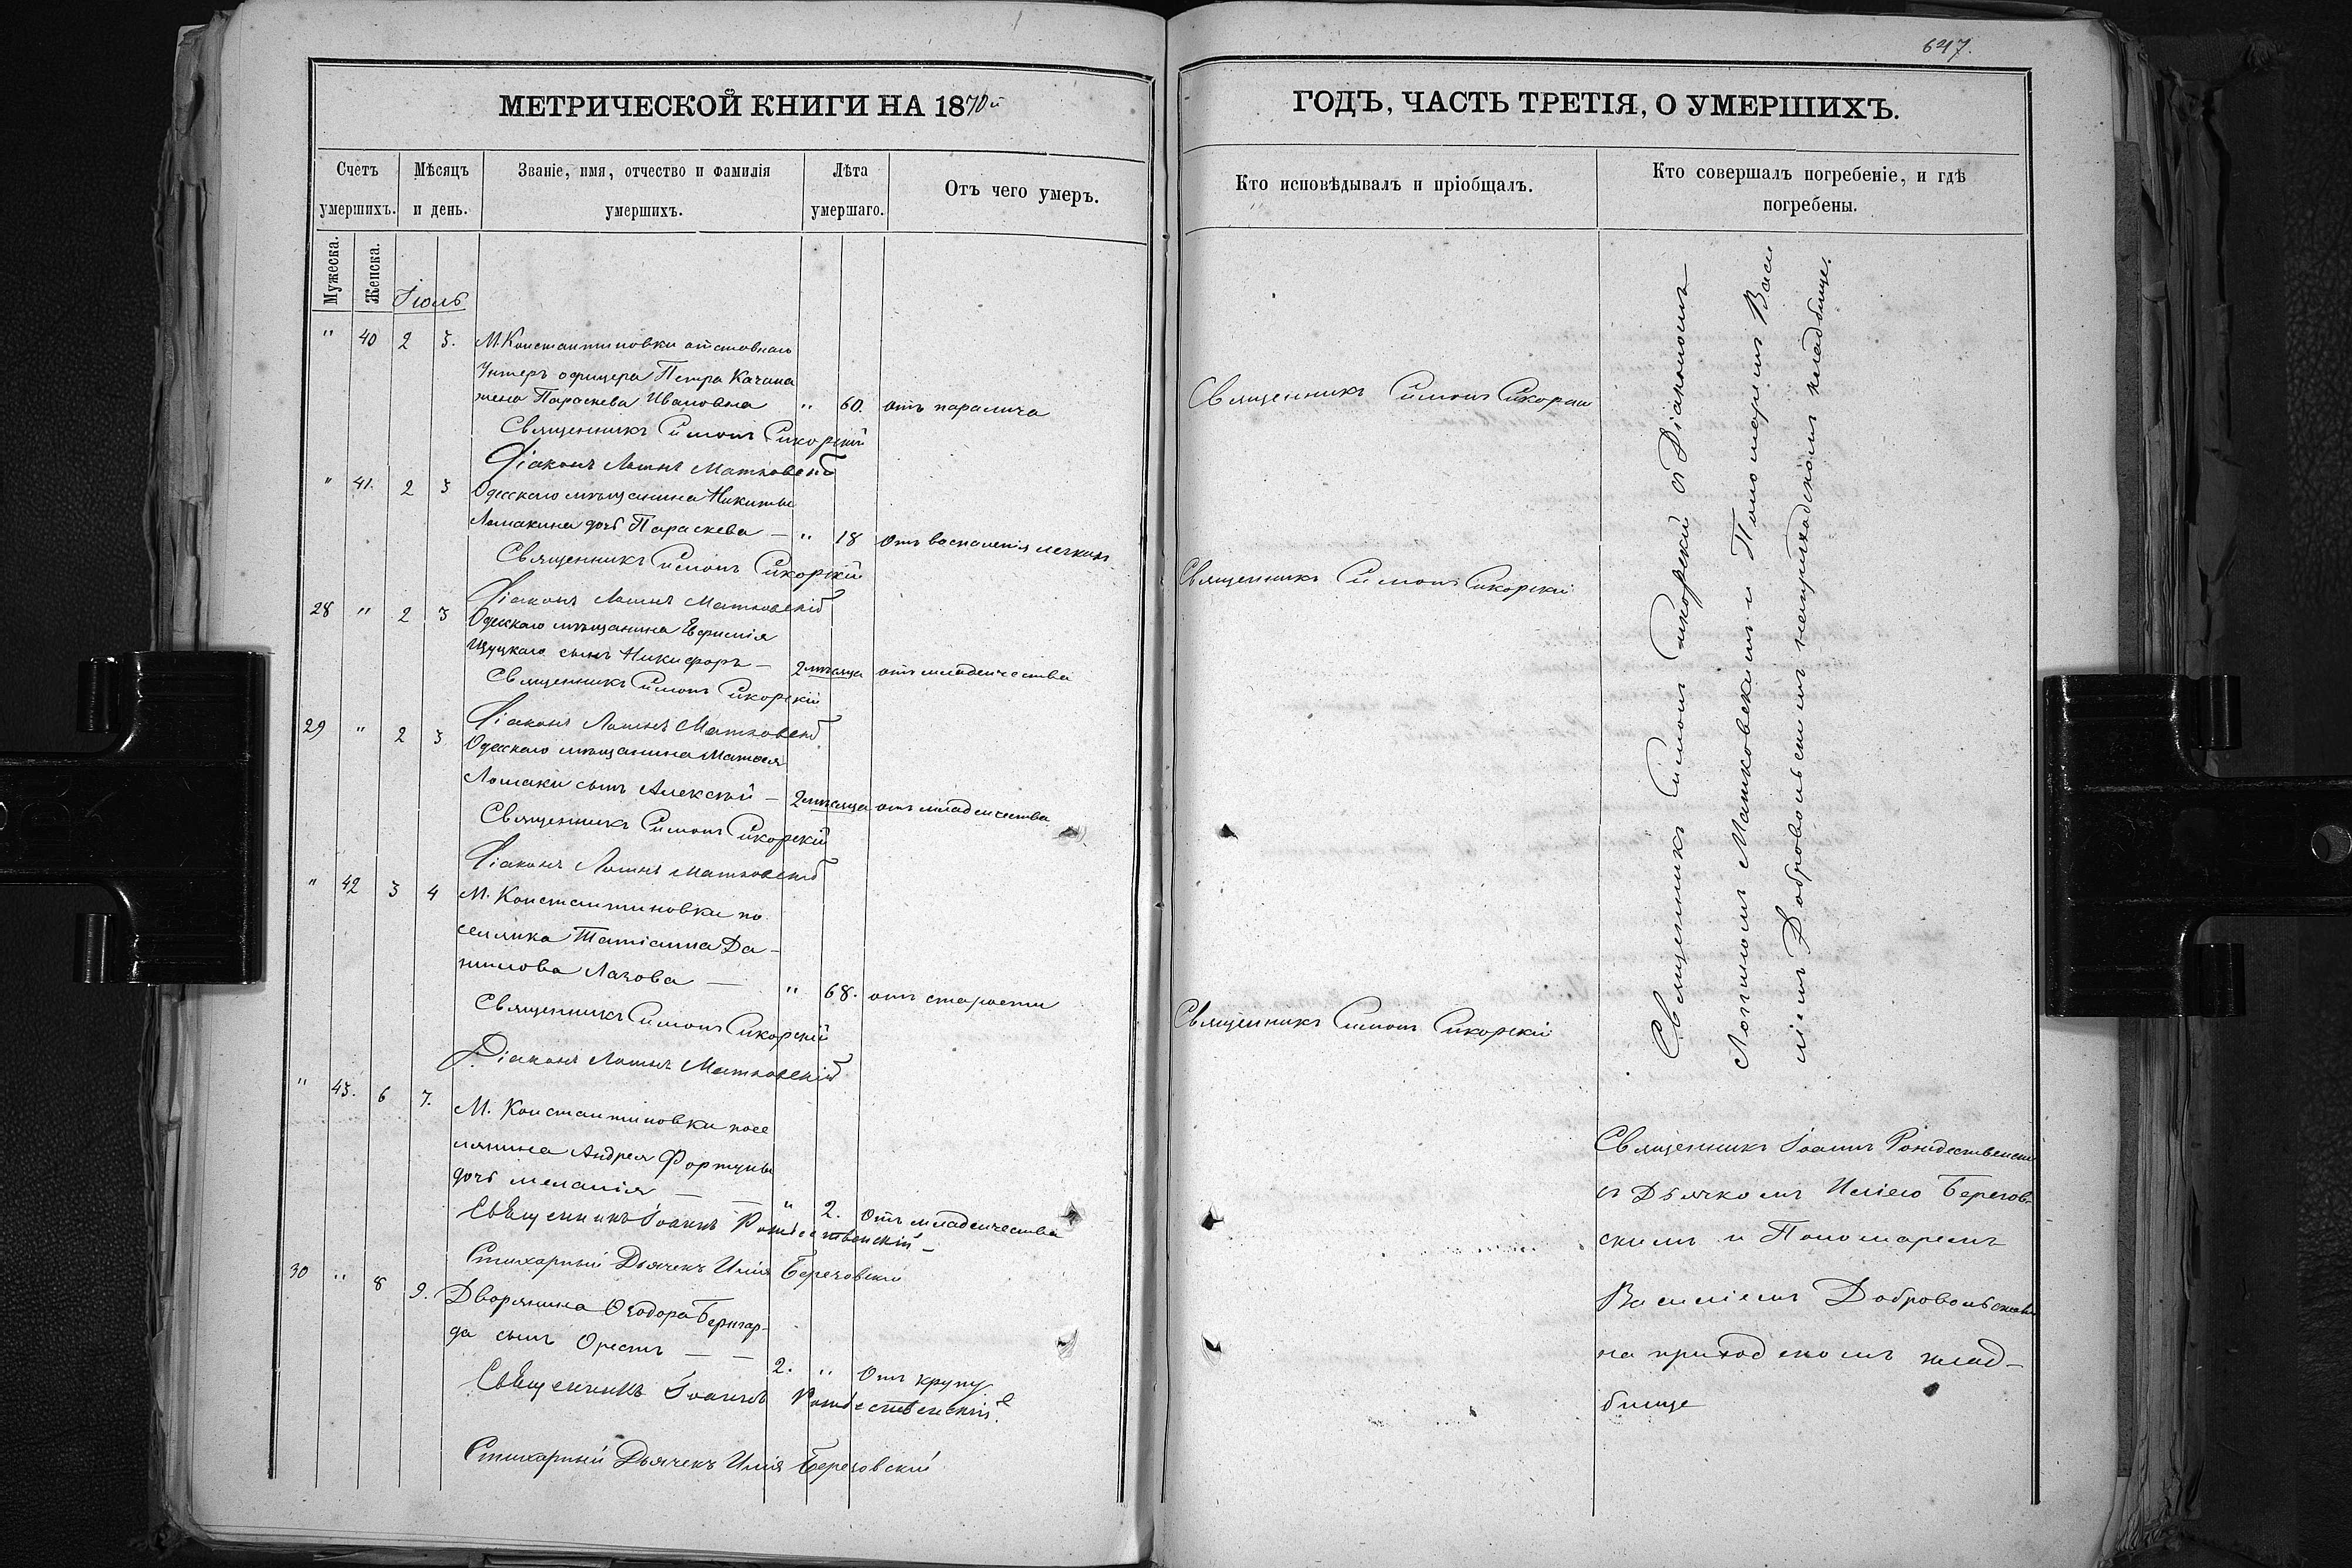 647.
МЕТРИЧЕСКОЙ КНИГИ НА 1870й
ГОДЪ, ЧАСТЬ ТРЕТІЯ, О УМЕРШИХЪ.
Счетъ умершихъ.
Мѣсяцъ и день.
Званіе, имя, отчество и фамилія умершихъ.
Лѣта умершаго.
Отъ чего умеръ.
Кто исповѣдывалъ и пріобщалъ.
Кто совершалъ погребеніе, и гдѣ погребены.
Мужеска.
Женска.
Іюль
" 40 2 3. М. Константиновки отставнаго
Унтеръ офицера Петра Качана
жена Параскева Ивановна " 60. отъ паралича
Священникъ Симонъ Сикорскій
Діаконъ Логинъ Матковскій
" 41. 2 3 Одесскаго мѣщанина Никиты
Ломакина дочь Параскева — " 18 Отъ воспаленія легкихъ
Священникъ Симонъ Сикорскій
Діаконъ Логинъ Матковскій
28 " 2 3 Одесскаго мѣщанина Евфимія
сынъ Никифоръ — 2 мѣсяца отъ младенчества
Священникъ Симонъ Сикорскій
Діаконъ Логинъ Матковскій
29 " 2 3 Одесскаго мѣщанина Матвея
Ломаки сынъ Алексѣй — 2 мѣсяца отъ младенчества
Священникъ Симонъ Сикорскій
Діаконъ Логинъ Матковскій
" 42 3 4 М. Константиновки по
селянка Татіанна Да-
нилова Лазова — " 68. отъ старости
Священникъ Симонъ Сикорскій
Діаконъ Логинъ Матковскій
" 43. 6 7. М. Константиновки посе
лянина Андрея Фортуны
дочь Меланія — — " 2. Отъ младенчества
Священникъ Іоаннъ Рождественскій
Стихарный Дьячекъ Илія Березовскій
30 " 8 9. Дворянина Ѳеодора Бернар-
да сынъ Орестъ — — 2. " Отъ крупу
Священникъ Іоаннъ Рождественскій
Стихарный Дьячекъ Илія Березовскій
Священникъ Симонъ Сикорскій
Священникъ Симонъ Сикорскій
Священникъ Симонъ Сикорскій
Священникъ Симонъ Сикорскій съ Діакономъ
Логиномъ Матковскимъ и Пономаремъ Васи
ліемъ Добровольскимъ на приходскомъ кладбище.
Священникъ Іоаннъ Рождественскій
съ Дьячкомъ Иліею Березов-
скимъ и Пономаремъ
Василіемъ Добровольскимъ
на приходскомъ клад-
бище